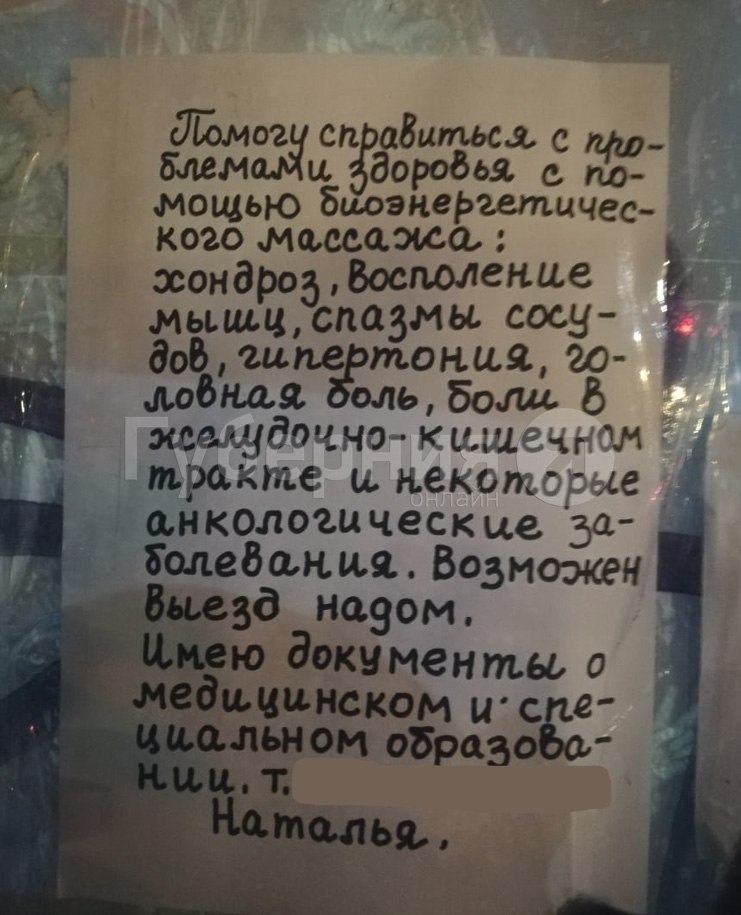 Помогу справиться с про-
блемами здоровья с по-
мощью биоэнергетичес-
кого массажа:
хондроз, Восполение
мышц, спазмы сосу-
дов, гипертония, го-
ловная боль, боли в
желудочно-кишечном
тракте и некоторые
анкологические за-
болевания. Возможен
выезд надом.
Имею документы о
медицинском и спе-
циальном образова-
нии. т.
Наталья.
Губерния
онлайн